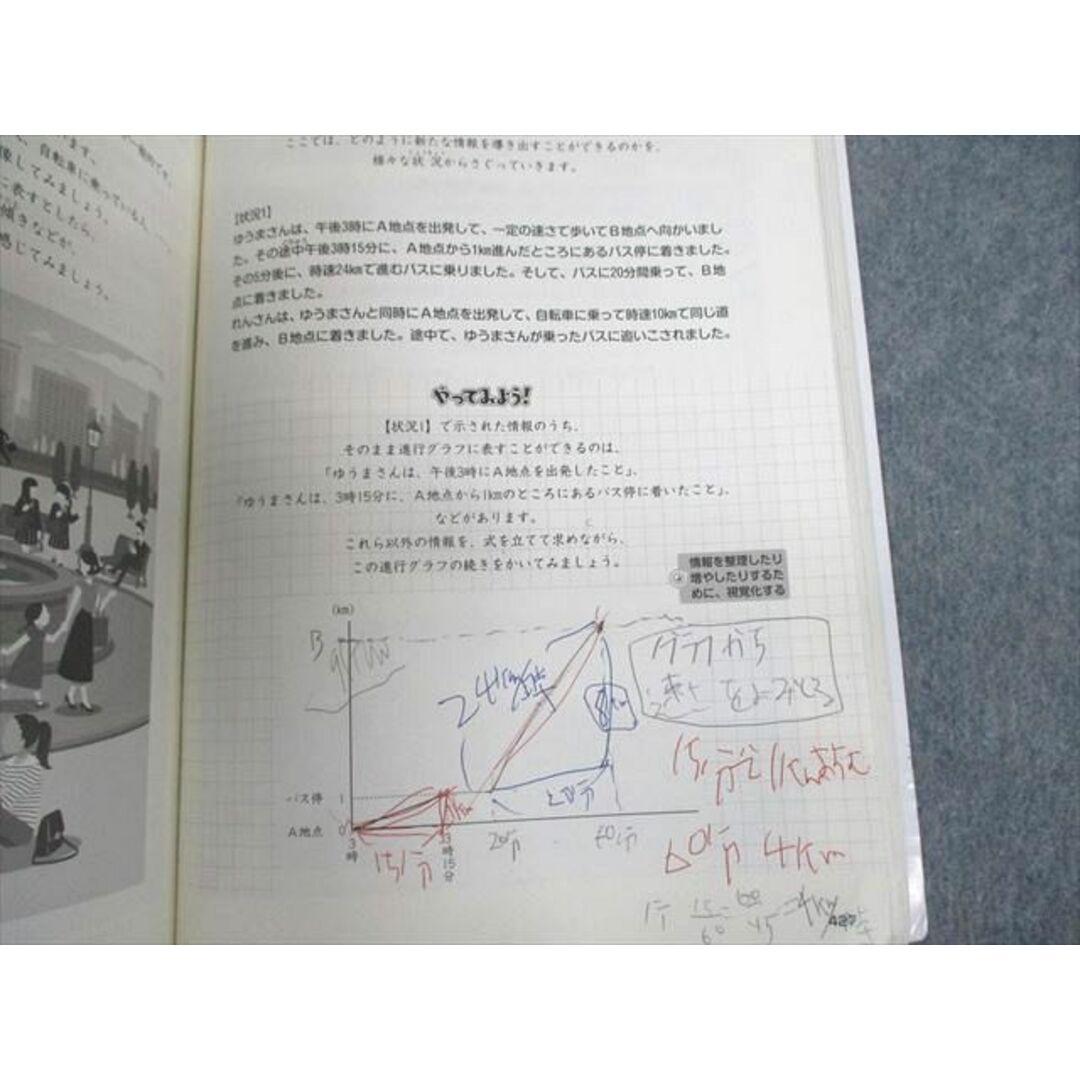 ます。
自転車に乗っている人
像してみましょう。
に表すとしたら、
傾きなどが、
感じてみましょう。
ここでは、どのように新たな情報を導き出すことができるのかを、
様々な状況からさぐっていきます。
【状況1】
ゆうまさんは、午後3時にA地点を出発して、一定の速さで歩いてB地点へ向かいまし
た。その途中午後3時15分に、A地点から1km進んだところにあるバス停に着きました。
その5分後に、時速24kmで進むバスに乗りました。そして、バスに20分間乗って、B地
点に着きました。
れんさんは、ゆうまさんと同時にA地点を出発して、自転車に乗って時速10kmで同じ道
を進み、B地点に着きました。途中で、ゆうまさんが乗ったバスに追いこされました。
やってみよう!
【状況1】で示された情報のうち、
そのまま進行グラフに表すことができるのは、
「ゆうまさんは、午後3時にA地点を出発したこと」、
「ゆうまさんは、3時15分に、A地点から1kmのところにあるバス停に着いたこと」、
などがあります。
これら以外の情報を、式を立てて求めながら、
この進行グラフの続きをかいてみましょう。
情報を整理したり
増やしたりするた
めに、視覚化する
(km)
B
24km
8km
グラフから
速さをよみとる
15分で1kmあるく
バス停 1
1km
20分
A地点 0
3時
3時15分
15分
20分
40分
60分 4km
15
60
60
15
=4km
427